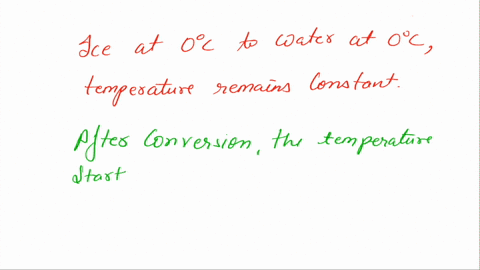 Ice at 0°C to water at 0°C,
temperature remains constant.
After conversion, the temperature
start